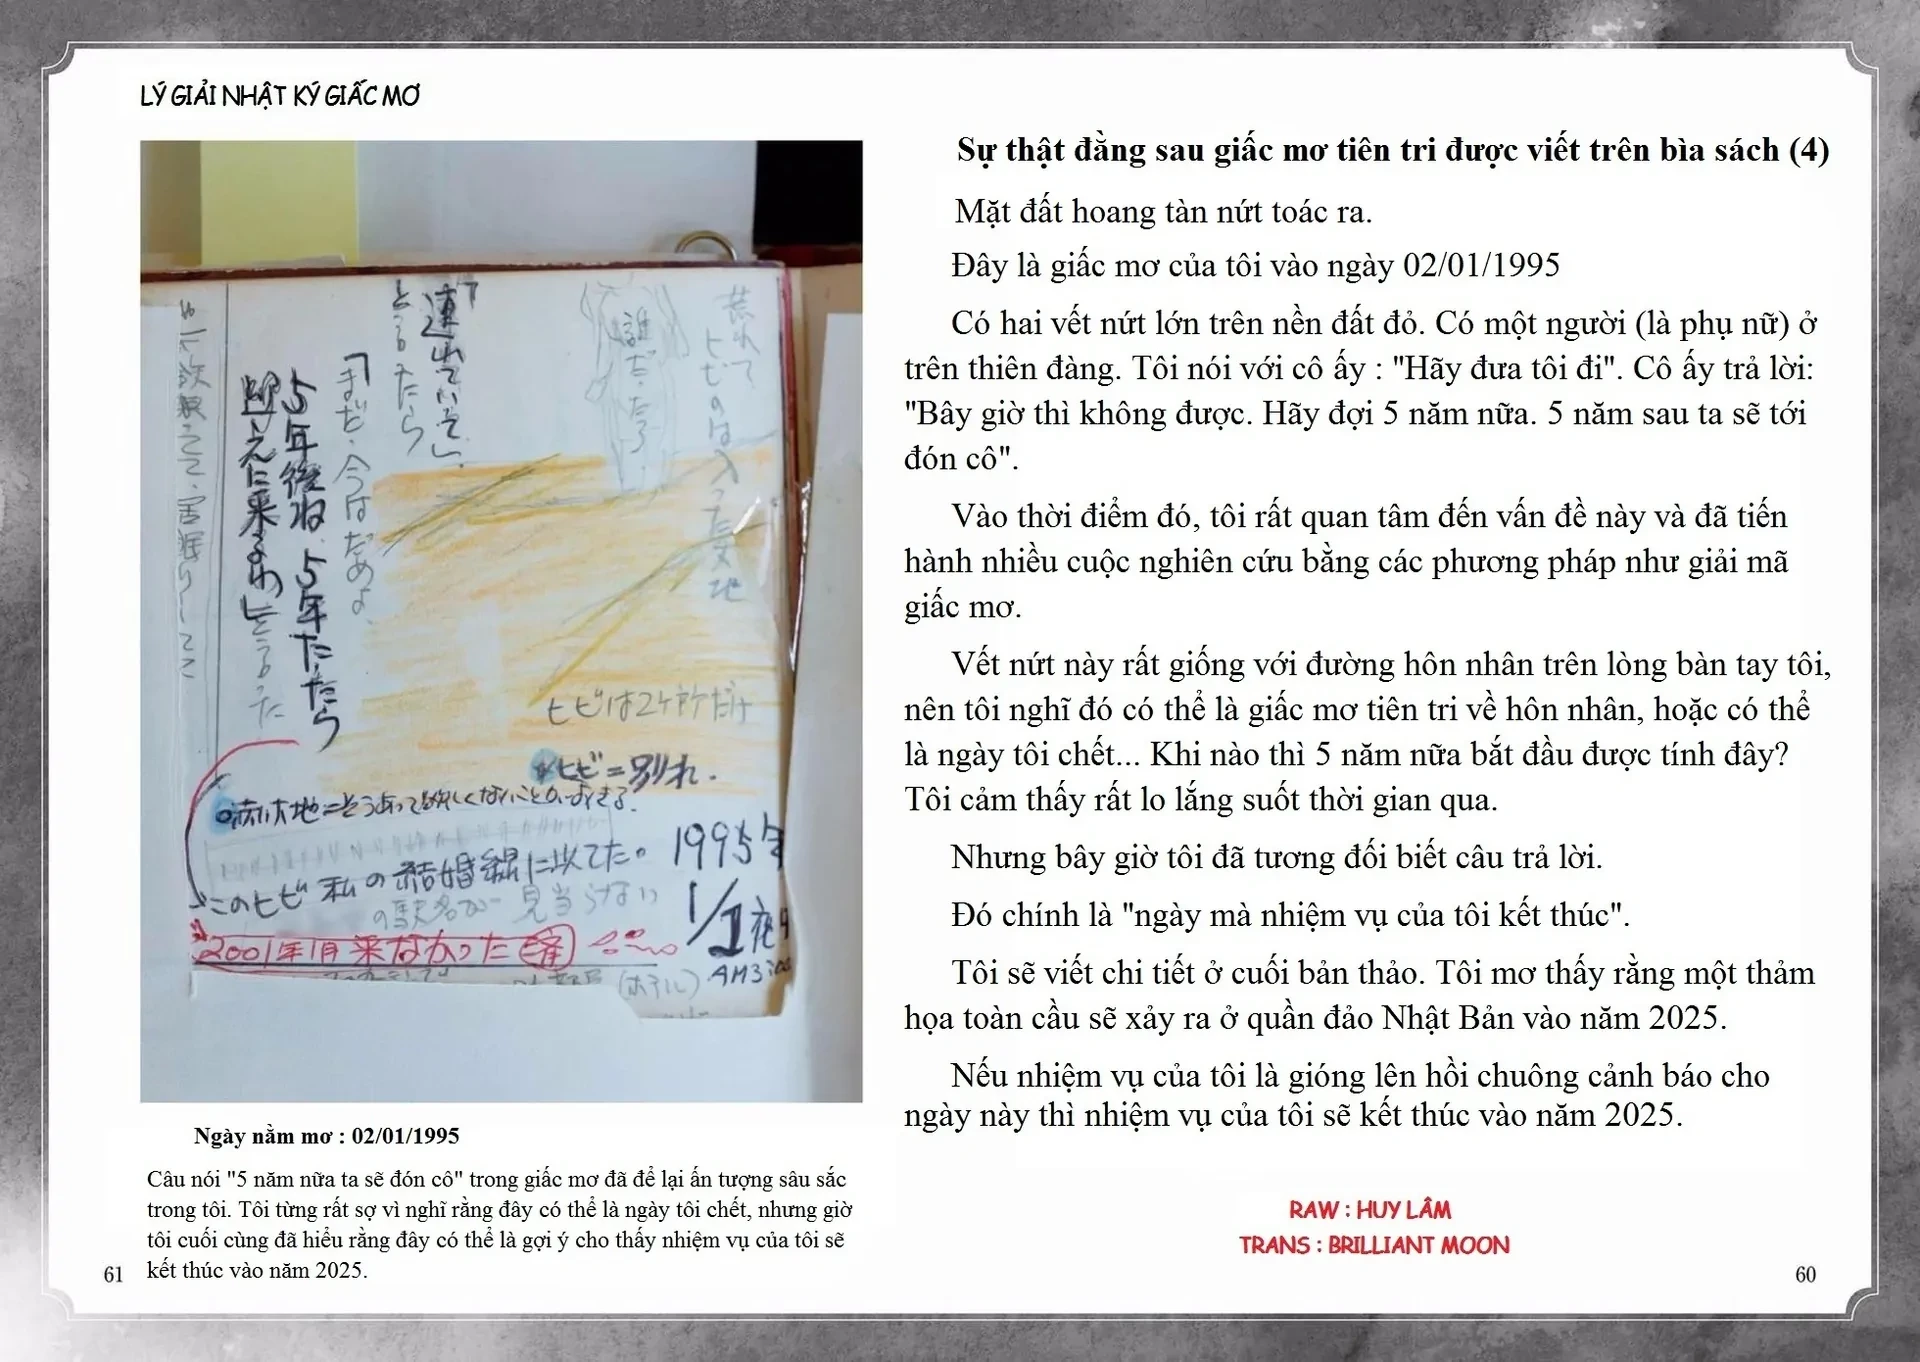 LÝ GIẢI NHẬT KÝ GIẤC MƠ
Sự thật đằng sau giấc mơ tiên tri được viết trên bìa sách (4)
Mặt đất hoang tàn nứt toác ra.
Đây là giấc mơ của tôi vào ngày 02/01/1995
Có hai vết nứt lớn trên nền đất đỏ. Có một người (là phụ nữ) ở
trên thiên đàng. Tôi nói với cô ấy : "Hãy đưa tôi đi". Cô ấy trả lời:
"Bây giờ thì không được. Hãy đợi 5 năm nữa. 5 năm sau ta sẽ tới
đón cô".
Vào thời điểm đó, tôi rất quan tâm đến vấn đề này và đã tiến
hành nhiều cuộc nghiên cứu bằng các phương pháp như giải mã
giấc mơ.
Vết nứt này rất giống với đường hôn nhân trên lòng bàn tay tôi,
nên tôi nghĩ đó có thể là giấc mơ tiên tri về hôn nhân, hoặc có thể
là ngày tôi chết... Khi nào thì 5 năm nữa bắt đầu được tính đây?
Tôi cảm thấy rất lo lắng suốt thời gian qua.
Nhưng bây giờ tôi đã tương đối biết câu trả lời.
Đó chính là "ngày mà nhiệm vụ của tôi kết thúc".
Tôi sẽ viết chi tiết ở cuối bản thảo. Tôi mơ thấy rằng một thảm
họa toàn cầu sẽ xảy ra ở quần đảo Nhật Bản vào năm 2025.
Nếu nhiệm vụ của tôi là gióng lên hồi chuông cảnh báo cho
ngày này thì nhiệm vụ của tôi sẽ kết thúc vào năm 2025.
RAW : HUY LÂM
TRANS : BRILLIANT MOON
60
荒れて
ヒビのは入った大地
誰だろう
「連れていって」
と言ったら
「まだ、今はだめよ、
5年後ね、5年たったら
迎えに来るわ」と言った
ヒビは2ヶ所だけ
ヒビ=別れ.
このヒビ 私の結婚線に似てた。
見当らない
1995年
1/2 夜
AM3:00
2001年1月来なかった
(ホテル)
Ngày nằm mơ : 02/01/1995
Câu nói "5 năm nữa ta sẽ đón cô" trong giấc mơ đã để lại ấn tượng sâu sắc
trong tôi. Tôi từng rất sợ vì nghĩ rằng đây có thể là ngày tôi chết, nhưng giờ
tôi cuối cùng đã hiểu rằng đây có thể là gợi ý cho thấy nhiệm vụ của tôi sẽ
kết thúc vào năm 2025.
61